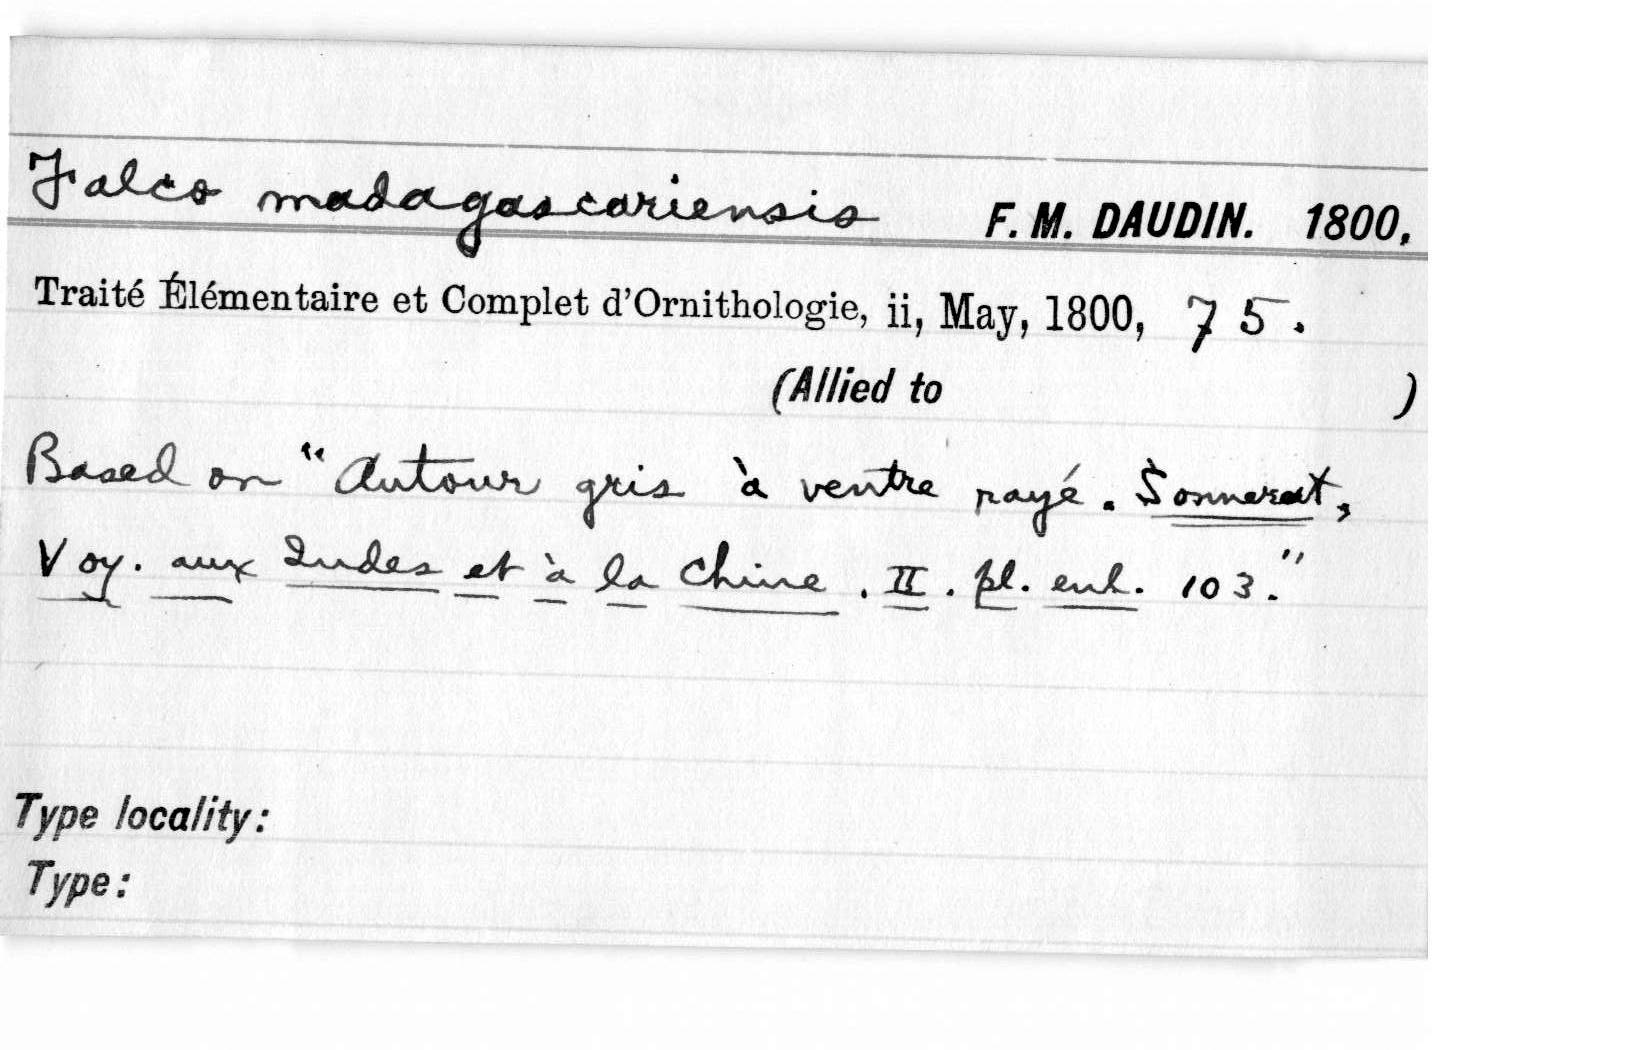 Falco madagascariensis F. M. DAUDIN. 1800,
Traité Élémentaire et Complet d'Ornithologie, ii, May, 1800, 75.
(Allied to )
Based on "Autour gris à ventre rayé. Sonnerat,
Voy. aux Indes et à la Chine. II. pl. enl. 103."
Type locality:
Type: